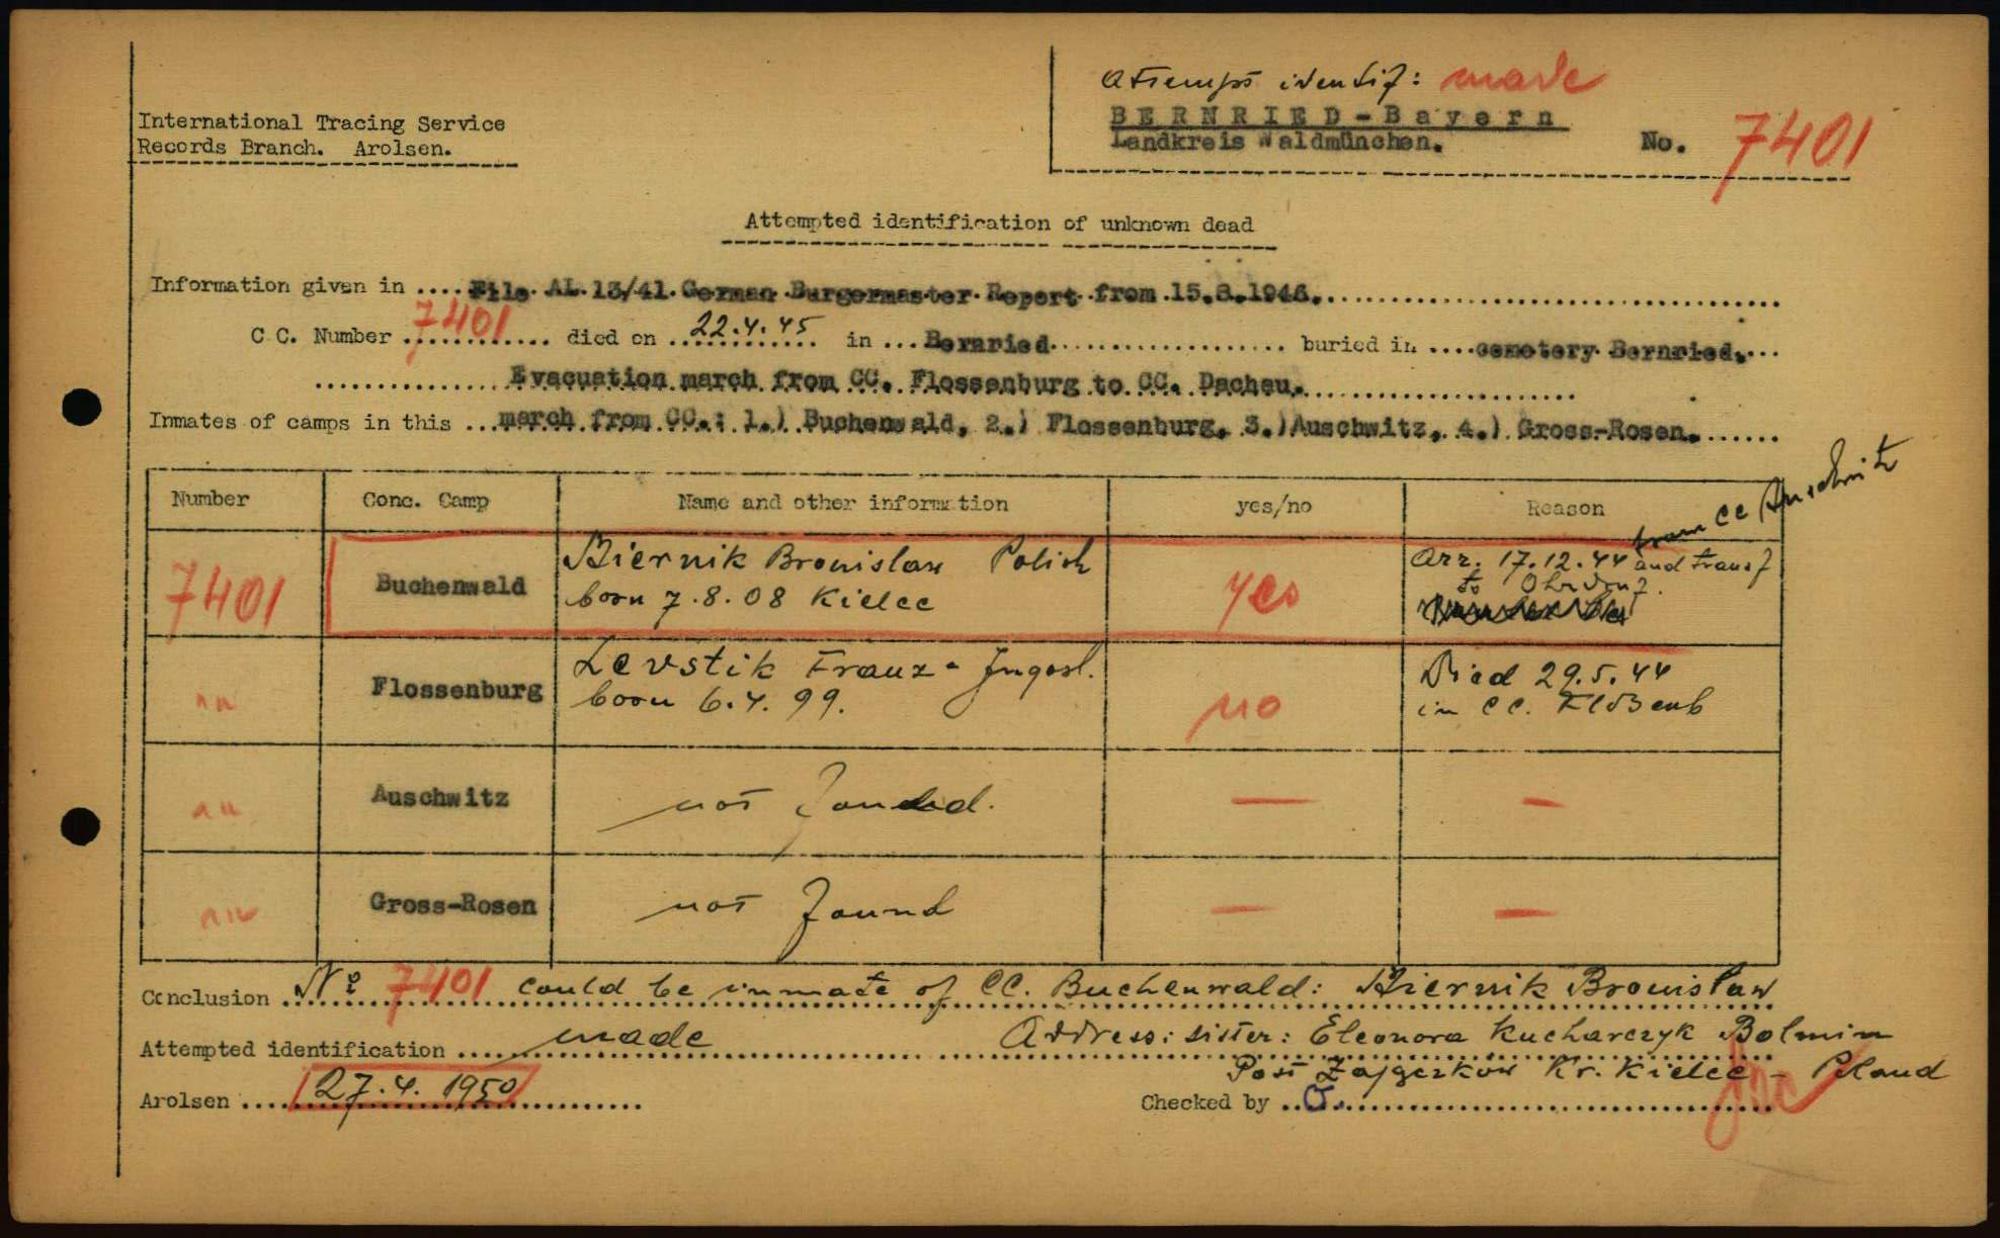 Attempt identif: made
International Tracing Service
Records Branch. Arolsen.
BERNRIED-Bayern
Landkreis Waldmünchen.
No. 7401
Attempted identification of unknown dead
Information given in .... File AL 13/41 German Burgermaster Report from 15.8.1946.
C C. Number 7401 died on 22.4.45 in ... Bernried buried in .... cemetery Bernried.
Evacuation march from CC. Flossenburg to CC. Dachau.
Inmates of camps in this ... march from CC.: 1.) Buchenwald, 2.) Flossenburg, 3.) Auschwitz, 4.) Gross-Rosen.
Number Conc. Camp Name and other information yes/no Reason
from CC Auschwitz
7401 Buchenwald Biernik Bronislaw Polish yes Arr. 17.12.44 and transf
born 7.8.08 Kielce to Ohrdruf.
" " Flossenburg Levstik Franz - Jugosl. no Died 29.5.44
born 6.4.99. in CC. Floßenb
" " Auschwitz not found. — —
" " Gross-Rosen not found — —
Conclusion No 7401 could be inmate of CC. Buchenwald: Biernik Bronislaw
Attempted identification made Address: sister: Eleonora Kucharczyk Bolmin
Post Zajgezkow Kr. Kielce - Poland
Arolsen 27.4.1950
Checked by